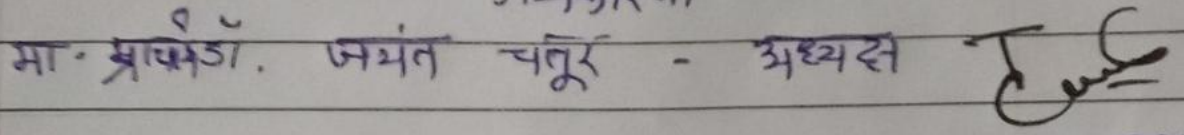 मा. प्राचार्य डॉ. जयंत चतूर - अध्यक्ष